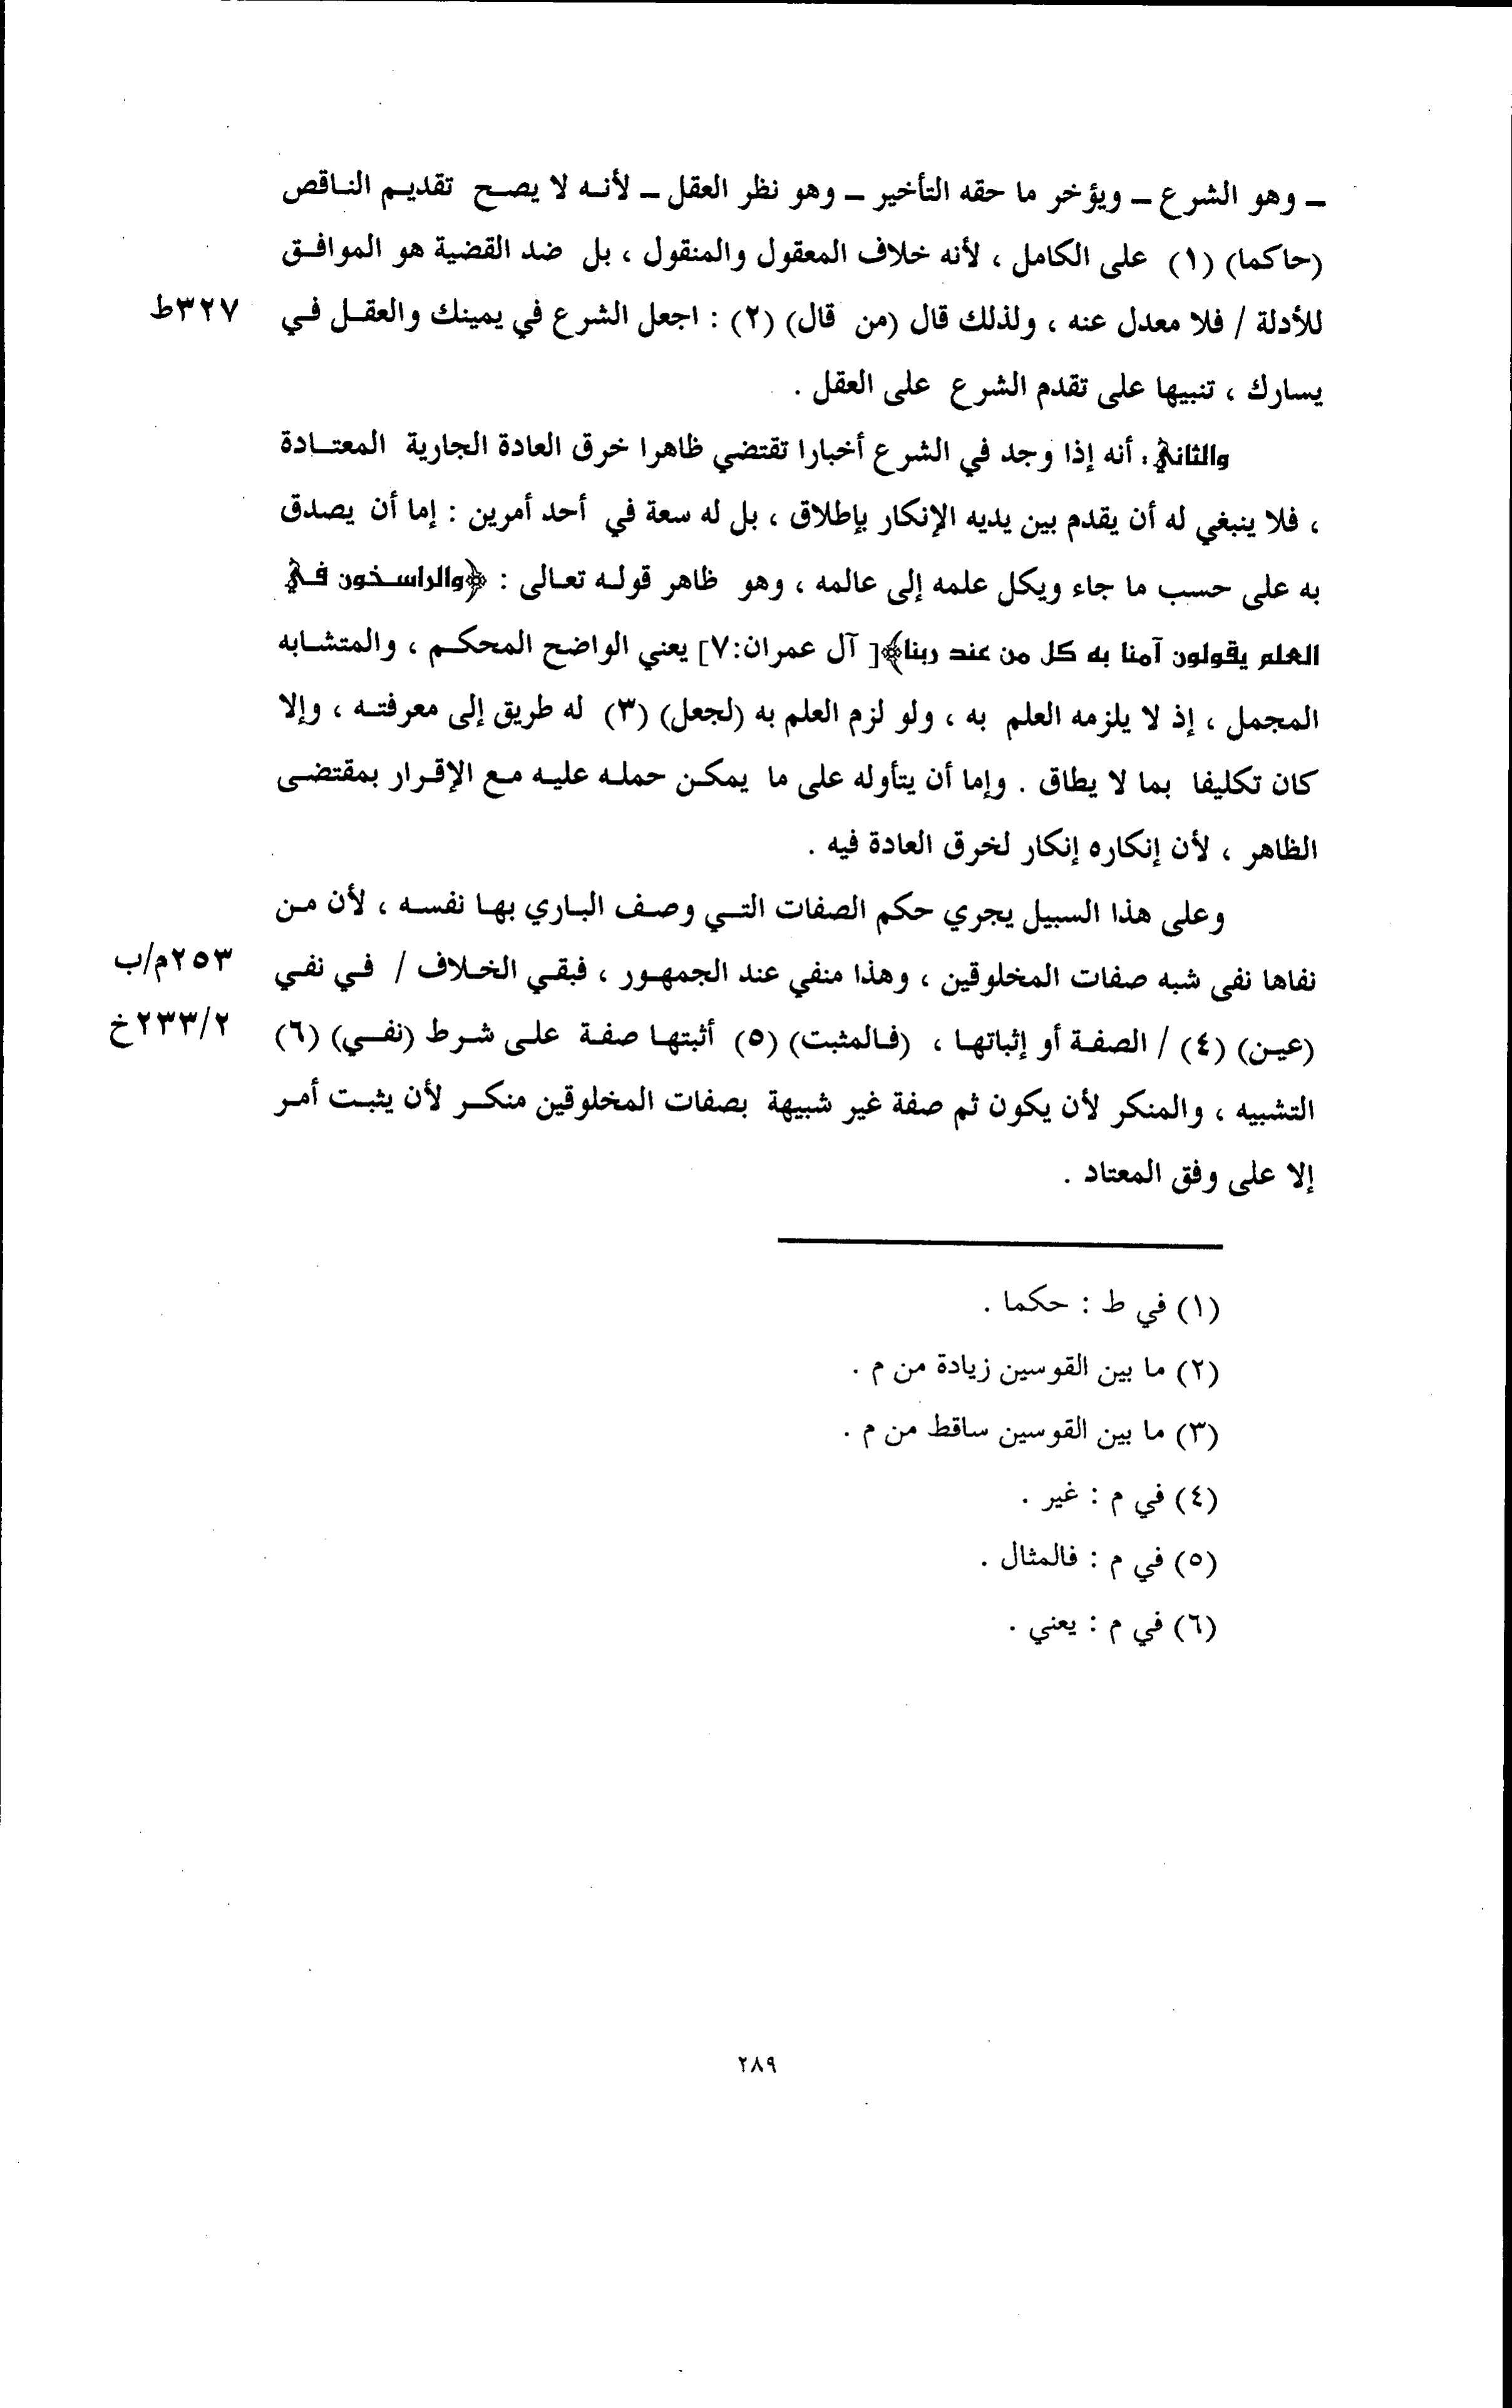 – وهو الشرع – ويؤخر ما حقه التأخير – وهو نظر العقل – لأنه لا يصح تقديم الناقص
(حاكما) (١) على الكامل ، لأنه خلاف المعقول والمنقول ، بل ضد القضية هو الموافق
للأدلة / فلا معدل عنه ، ولذلك قال (من قال) (٢) : اجعل الشرع في يمينك والعقل في ٣٢٧ط
يسارك ، تنبيها على تقدم الشرع على العقل .
والثاني: أنه إذا وجد في الشرع أخبارا تقتضي ظاهرا خرق العادة الجارية المعتادة
، فلا ينبغي له أن يقدم بين يديه الإنكار بإطلاق ، بل له سعة في أحد أمرين : إما أن يصدق
به على حسب ما جاء ويكل علمه إلى عالمه ، وهو ظاهر قوله تعالى : ﴿والراسخون في
العلم يقولون آمنا به كل من عند ربنا﴾[ آل عمران:٧] يعني الواضح المحكم ، والمتشابه
المجمل ، إذ لا يلزمه العلم به ، ولو لزم العلم به (لجعل) (٣) له طريق إلى معرفته ، وإلا
كان تكليفا بما لا يطاق . وإما أن يتأوله على ما يمكن حمله عليه مع الإقرار بمقتضى
الظاهر ، لأن إنكاره إنكار لخرق العادة فيه .
وعلى هذا السبيل يجري حكم الصفات التي وصف الباري بها نفسه ، لأن من
نفاها نفى شبه صفات المخلوقين ، وهذا منفي عند الجمهور ، فبقي الخلاف / في نفي ٢٥٣م/ب
(عين) (٤) / الصفة أو إثباتها ، (فالمثبت) (٥) أثبتها صفة على شرط (نفي) (٦) ٢٣٣/٢خ
التشبيه ، والمنكر لأن يكون ثم صفة غير شبيهة بصفات المخلوقين منكر لأن يثبت أمر
إلا على وفق المعتاد .
(١) في ط : حكما .
(٢) ما بين القوسين زيادة من م .
(٣) ما بين القوسين ساقط من م .
(٤) في م : غير .
(٥) في م : فالمثال .
(٦) في م : يعني .
٢٨٩